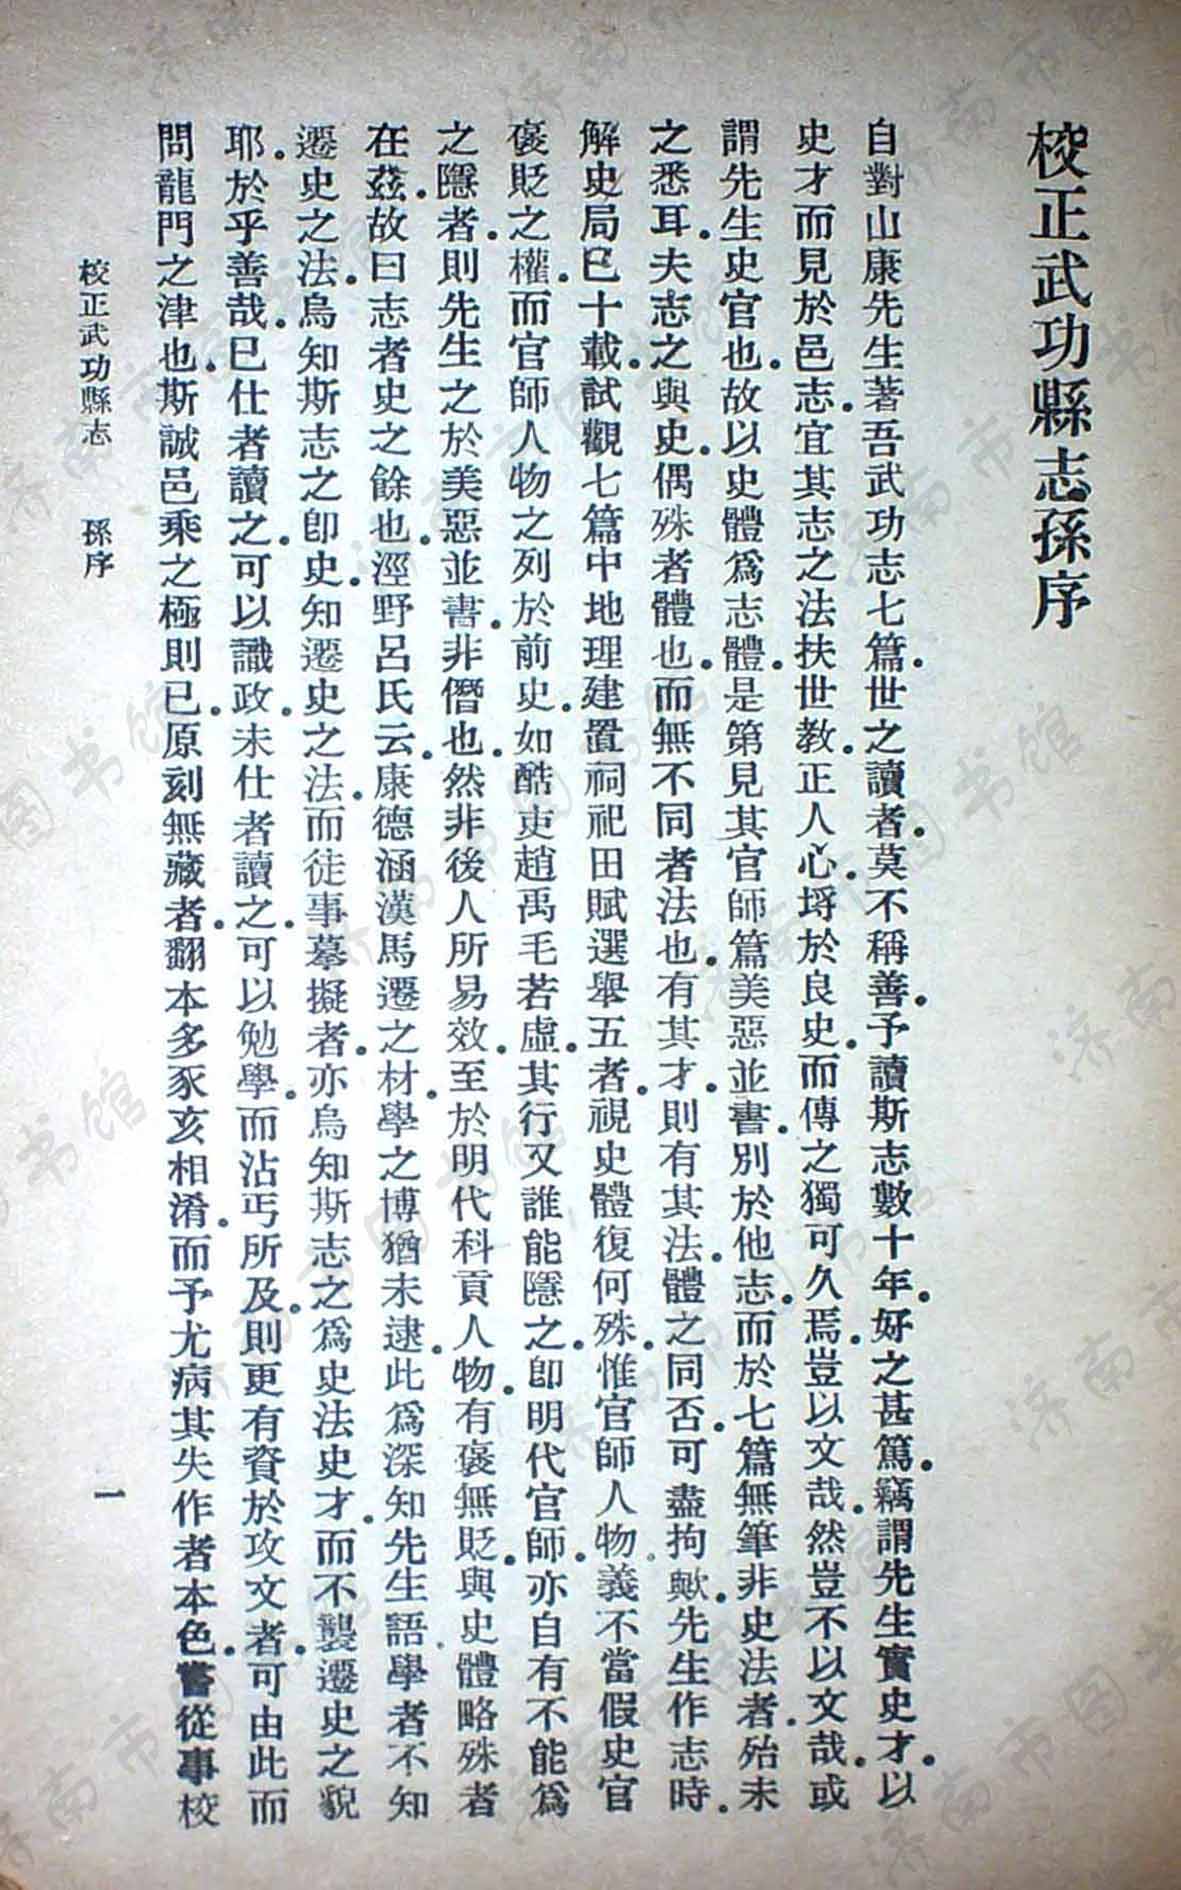 校正武功縣志孫序
自對山康先生著吾武功志七篇。世之讀者。莫不稱善。予讀斯志數十年。好之甚篤。竊謂先生實史才。以
史才而見於邑志。宜其志之法扶世教。正人心。埒於良史。而傳之獨可久焉。豈以文哉。然豈不以文哉。或
謂先生史官也。故以史體爲志體。是第見其官師篇美惡並書。別於他志。而於七篇無筆非史法者。殆未
之悉耳。夫志之與史。偶殊者體也。而無不同者法也。有其才。則有其法。體之同否。可盡拘歟。先生作志時。
解史局已十載。試觀七篇中地理建置祠祀田賦選舉五者。視史體復何殊。惟官師人物。義不當假史官
褒貶之權。而官師人物之列於前史。如酷吏趙禹毛若虛。其行又誰能隱之。卽明代官師。亦自有不能爲
之隱者。則先生之於美惡並書。非僭也。然非後人所易效。至於明代科貢人物。有褒無貶。與史體略殊者
在茲。故曰志者史之餘也。涇野呂氏云。康德涵漢馬遷之材。學之博猶未逮。此爲深知先生語。學者不知
遷史之法。烏知斯志之卽史。知遷史之法。而徒事摹擬者。亦烏知斯志之爲史法史才。而不襲遷史之貌
耶。於乎善哉。已仕者讀之。可以識政。未仕者讀之。可以勉學。而沾丐所及。則更有資於攻文者。可由此而
問龍門之津也。斯誠邑乘之極則已。原刻無藏者。翻本多豕亥相淆。而予尤病其失作者本色。嘗從事校
校正武功縣志 孫序
一
济南市图书馆